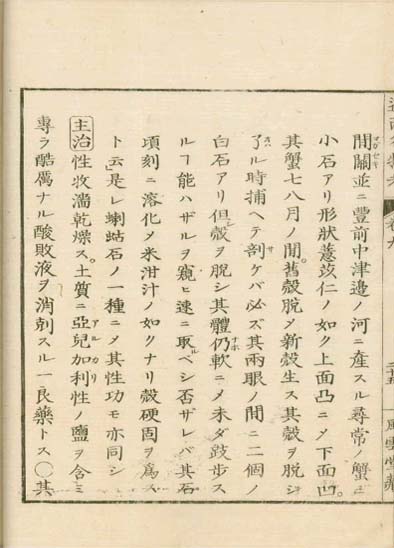 間關並ニ豐前中津邊ノ河ニ産スル尋常ノ蟹ニ
小石アリ形狀薏苡仁ノ如ク上面凸ニㄨ下面凹。
其蟹七八月ノ間。舊殼脱ㄨ新殼生ス其殼ヲ脱シ
了ル時捕ヘテ剖ケバ必ズ其兩眼ノ間ニ二個ノ
白石アリ但殼ヲ脱シ其體仍軟ニㄨ未ダ跂歩ス
ルヿ能ハザルヲ窺ヒ速ニ取ベシ否ザレバ其石
頃刻ニ溶化ㄨ米泔汁ノ如クナリ殼硬固ヲ爲ス
ト云是レ蝲蛄石ノ一種ニㄨ其性功モ亦同シ
主治性收濇乾燥ス。土質ニ亞兒加利性ノ鹽ヲ含ミ
專ラ酷厲ナル酸敗液ヲ消剋スル一良藥トス〇其